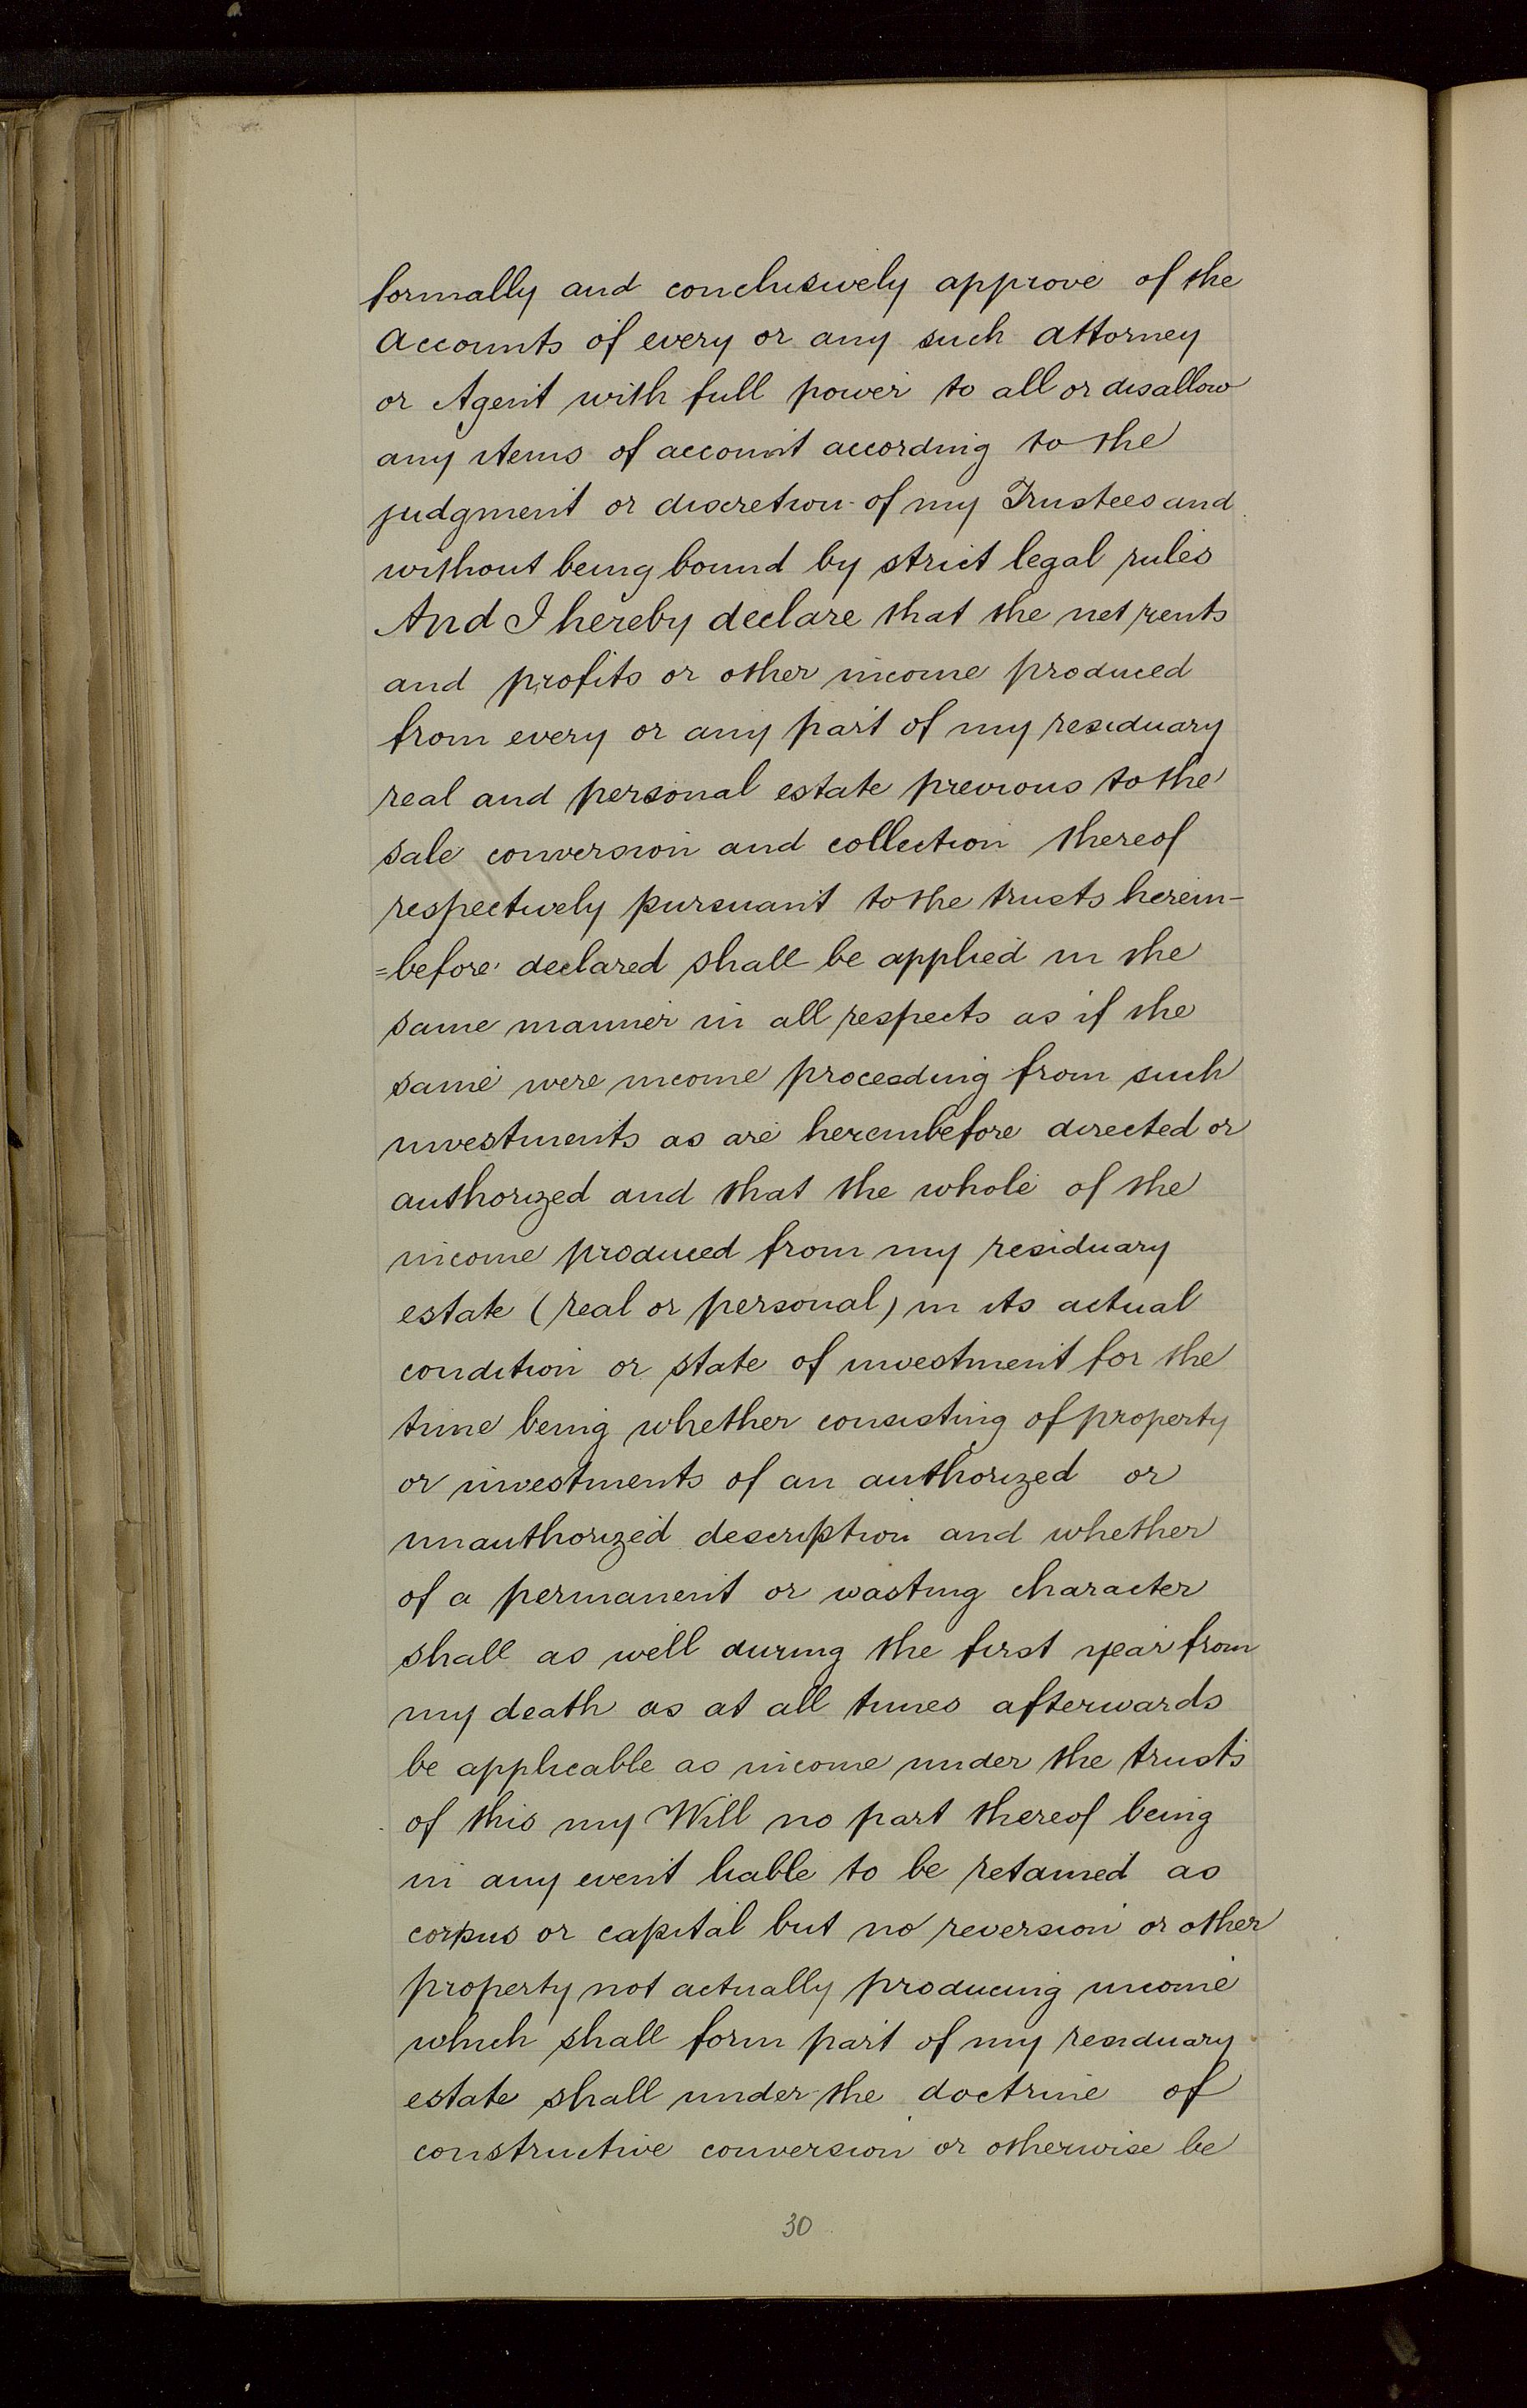 formally and conclusively approve of the
Accounts of every or any such Attorney
or Agent with full power to all or disallow
any items of account according to the
judgment or discretion of my Trustees and
without being bound by strict legal rules
And I hereby declare that the net rents
and profits or other income produced
from every or any part of my residuary
real and personal estate previous to the
sale conversion and collection thereof
respectively pursuant to the trusts herein-
=before declared shall be applied in the
same manner in all respects as if the
same were income proceeding from such
investments as are hereinbefore directed or
authorized and that the whole of the
income produced from my residuary
estate (real or personal) in its actual
condition or state of investment for the
time being whether consisting of property
or investments of an authorized or
unauthorized description and whether
of a permanent or wasting character
shall as well during the first year from
my death as at all times afterwards
be applicable as income under the trusts
of this my Will no part thereof being
in any event liable to be retained as
corpus or capital but no reversion or other
property not actually producing income
which shall form part of my residuary
estate shall under the doctrine of
constructive conversion or otherwise be
30